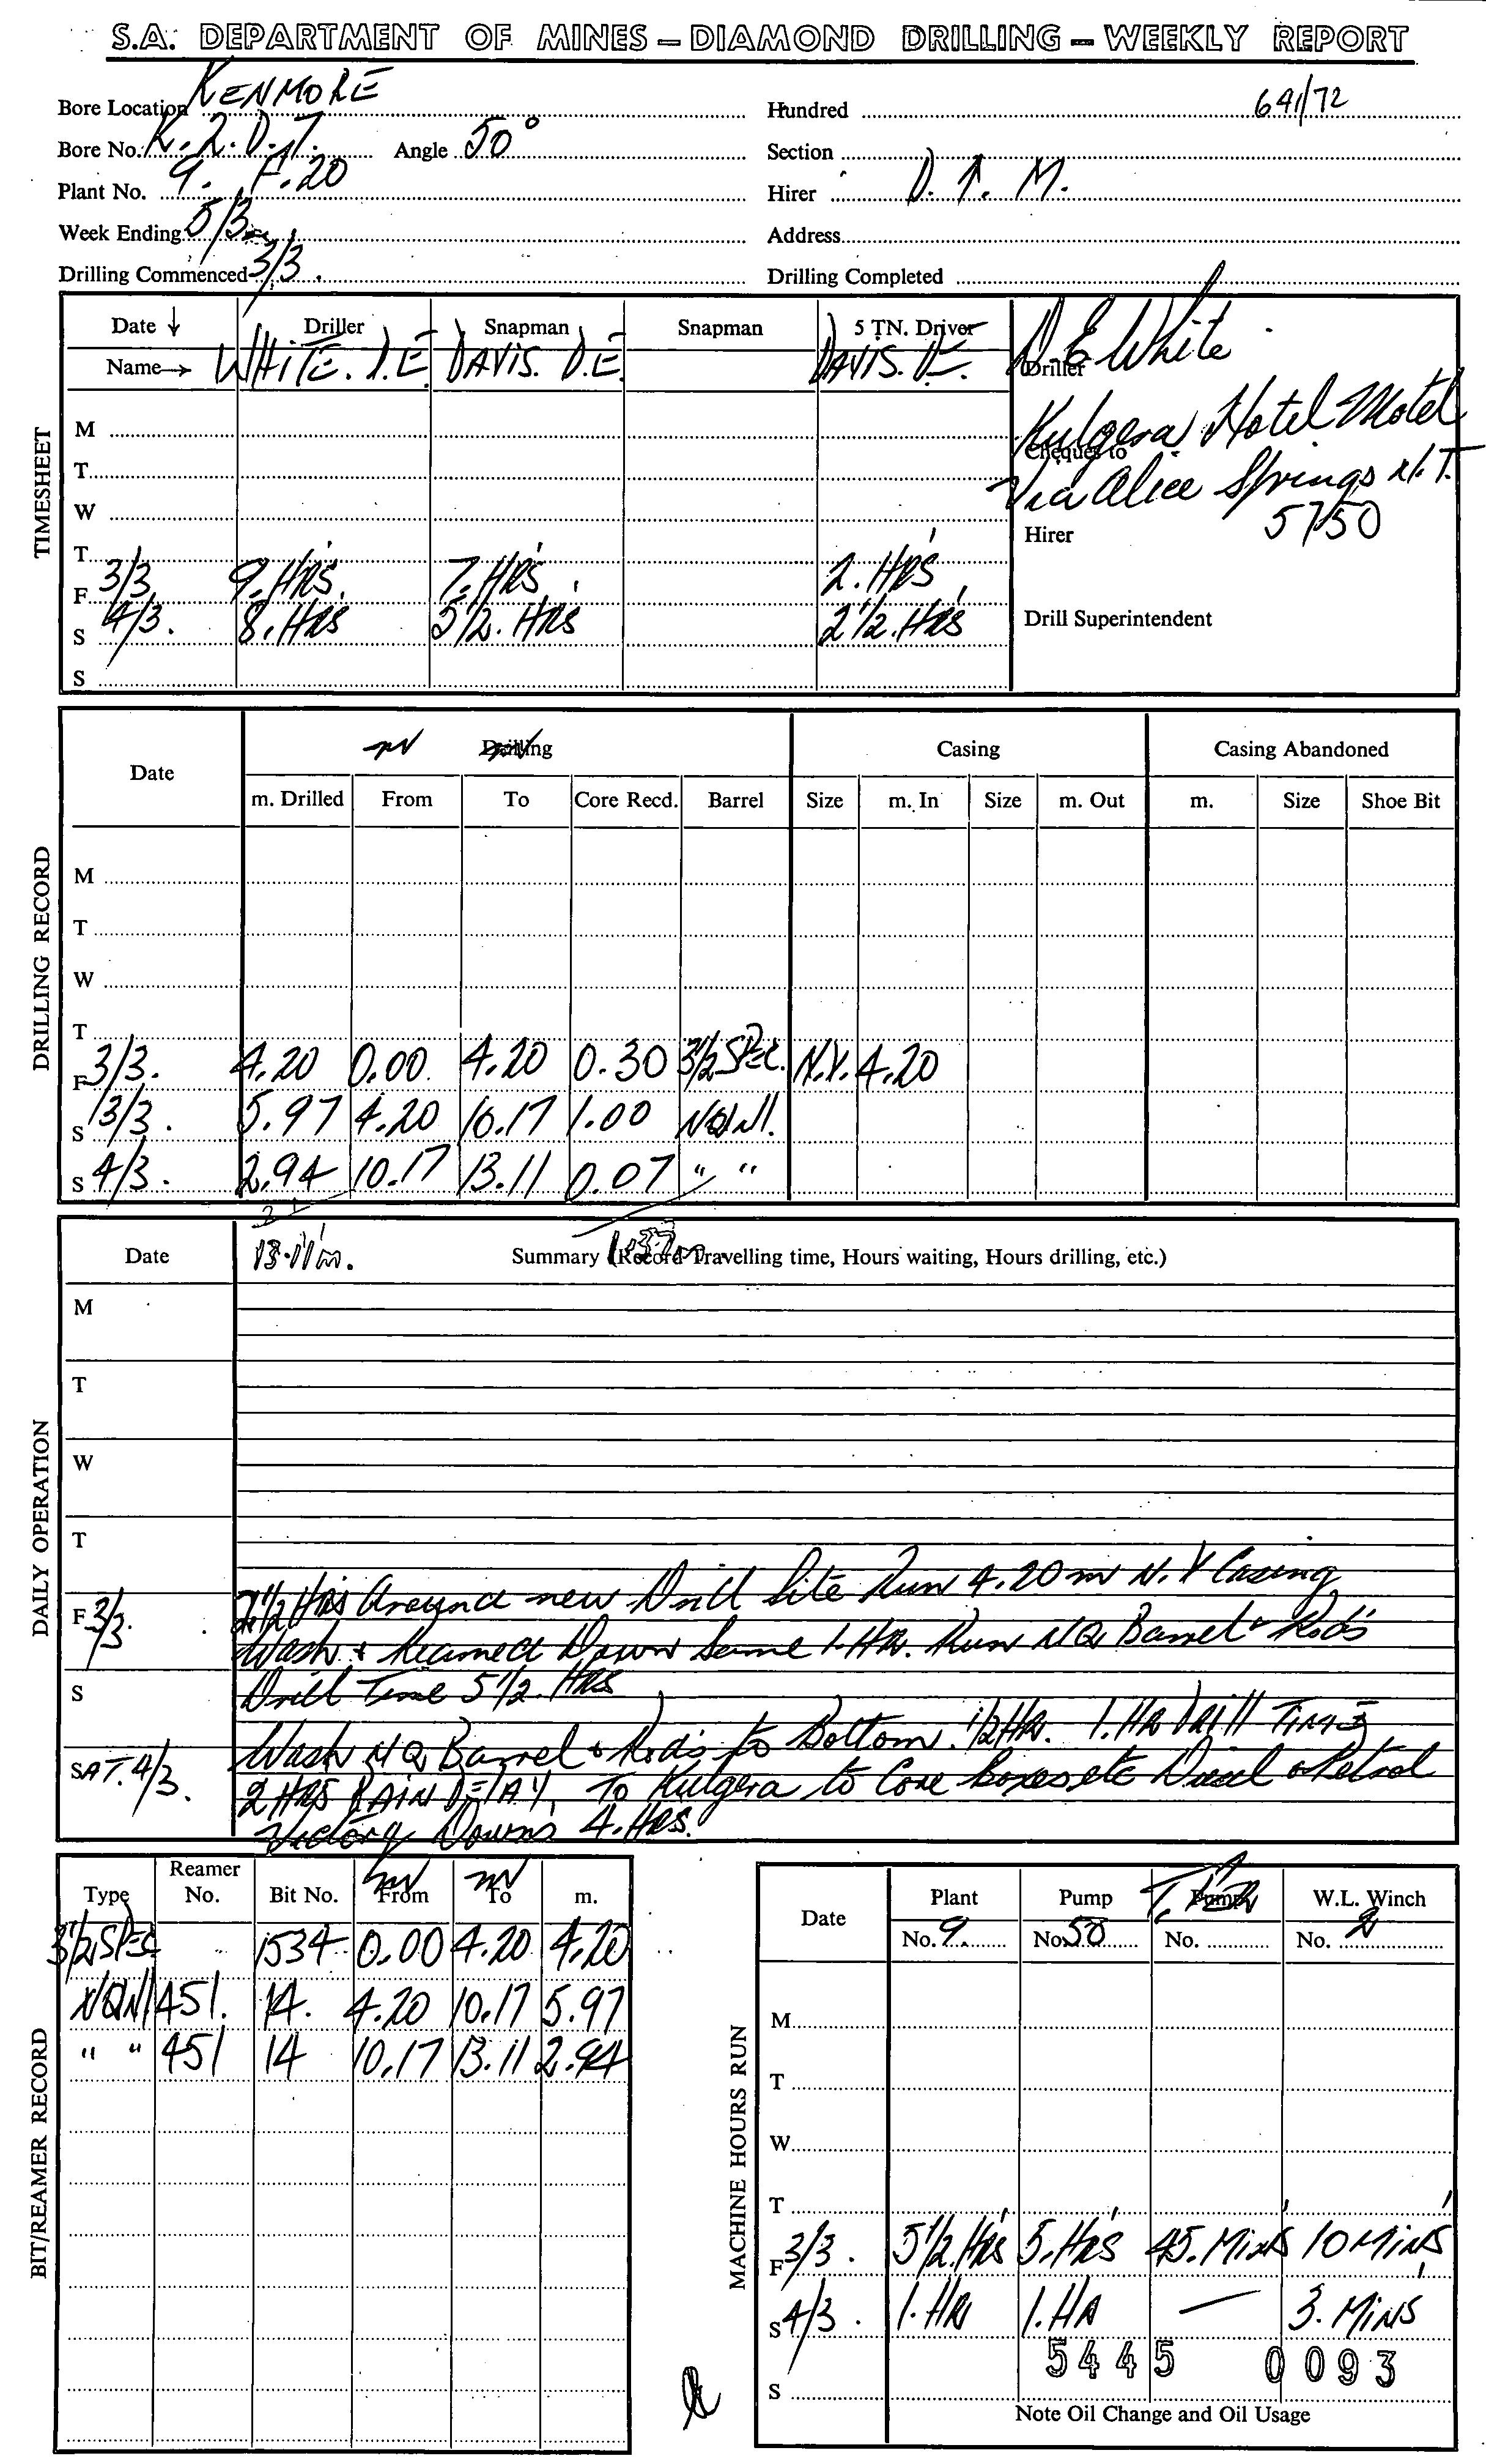 S.A. DEPARTMENT OF MINES – DIAMOND DRILLING – WEEKLY REPORT
Bore Location KENMORE
Hundred 641/72
Bore No. K.2.D.7. Angle 50°
Section
Plant No. 9. F.20
Hirer D. T. M.
Week Ending 5/3
Address
Drilling Commenced 3/3.
Drilling Completed
TIMESHEET
Date ↓ Driller Snapman Snapman 5 TN. Driver
Name→ WHITE. D.E. DAVIS. D.E. DAVIS. D.E.
D E White
Driller
M
Kulgera Hotel Motel
Cheques to
T
Via Alice Springs N.T.
W
5750
Hirer
T
F 3/3 9. HRS. 7. HRS. 2. HRS.
S 4/3. 8. HRS 5 1/2. HRS 2 1/2. HRS
Drill Superintendent
S
DRILLING RECORD
Date Drilling Casing Casing Abandoned
m. Drilled From To Core Recd. Barrel Size m. In Size m. Out m. Size Shoe Bit
M
T
W
T
F 3/3. 4.20 0.00 4.20 0.30 3 1/2 SPEC. N.V. 4.20
S 3/3. 5.97 4.20 10.17 1.00 NQWll.
S 4/3. 2.94 10.17 13.11 0.07 " "
DAILY OPERATION
Date 13.11m. Summary (Record Travelling time, Hours waiting, Hours drilling, etc.) 1.37m
M
T
W
T
F 3/3. 2 1/2 HRS Around new Drill Site Run 4.20 m N.V Casing
Wash & Reamed Down Same 1.HR. Run NQ Barrel & Rods
S
Drill Time 5 1/2. HRS
Wash NQ Barrel & Rods to Bottom. 1/2 HR. 1.HR Drill TIME
SAT. 4/3.
2 HRS RAIN DELAY. To Kulgera to Core boxes etc Diesel & Petrol
Victory Downs 4. HRS.
BIT/REAMER RECORD
Type Reamer No. Bit No. From To m.
3 1/2 SPEC 1534 0.00 4.20 4.20
NQWl 451. 14. 4.20 10.17 5.97
" " 451 14 10.17 13.11 2.94
MACHINE HOURS RUN
Date Plant Pump Pump W.L. Winch
No. 9. No. 50 No. No. 2
M
T
W
T
F 3/3. 5 1/2. HRS 5. HRS 45. MINS 10 MINS
S 4/3. 1. HR 1. HR — 3. MINS
5445 0093
S
Note Oil Change and Oil Usage